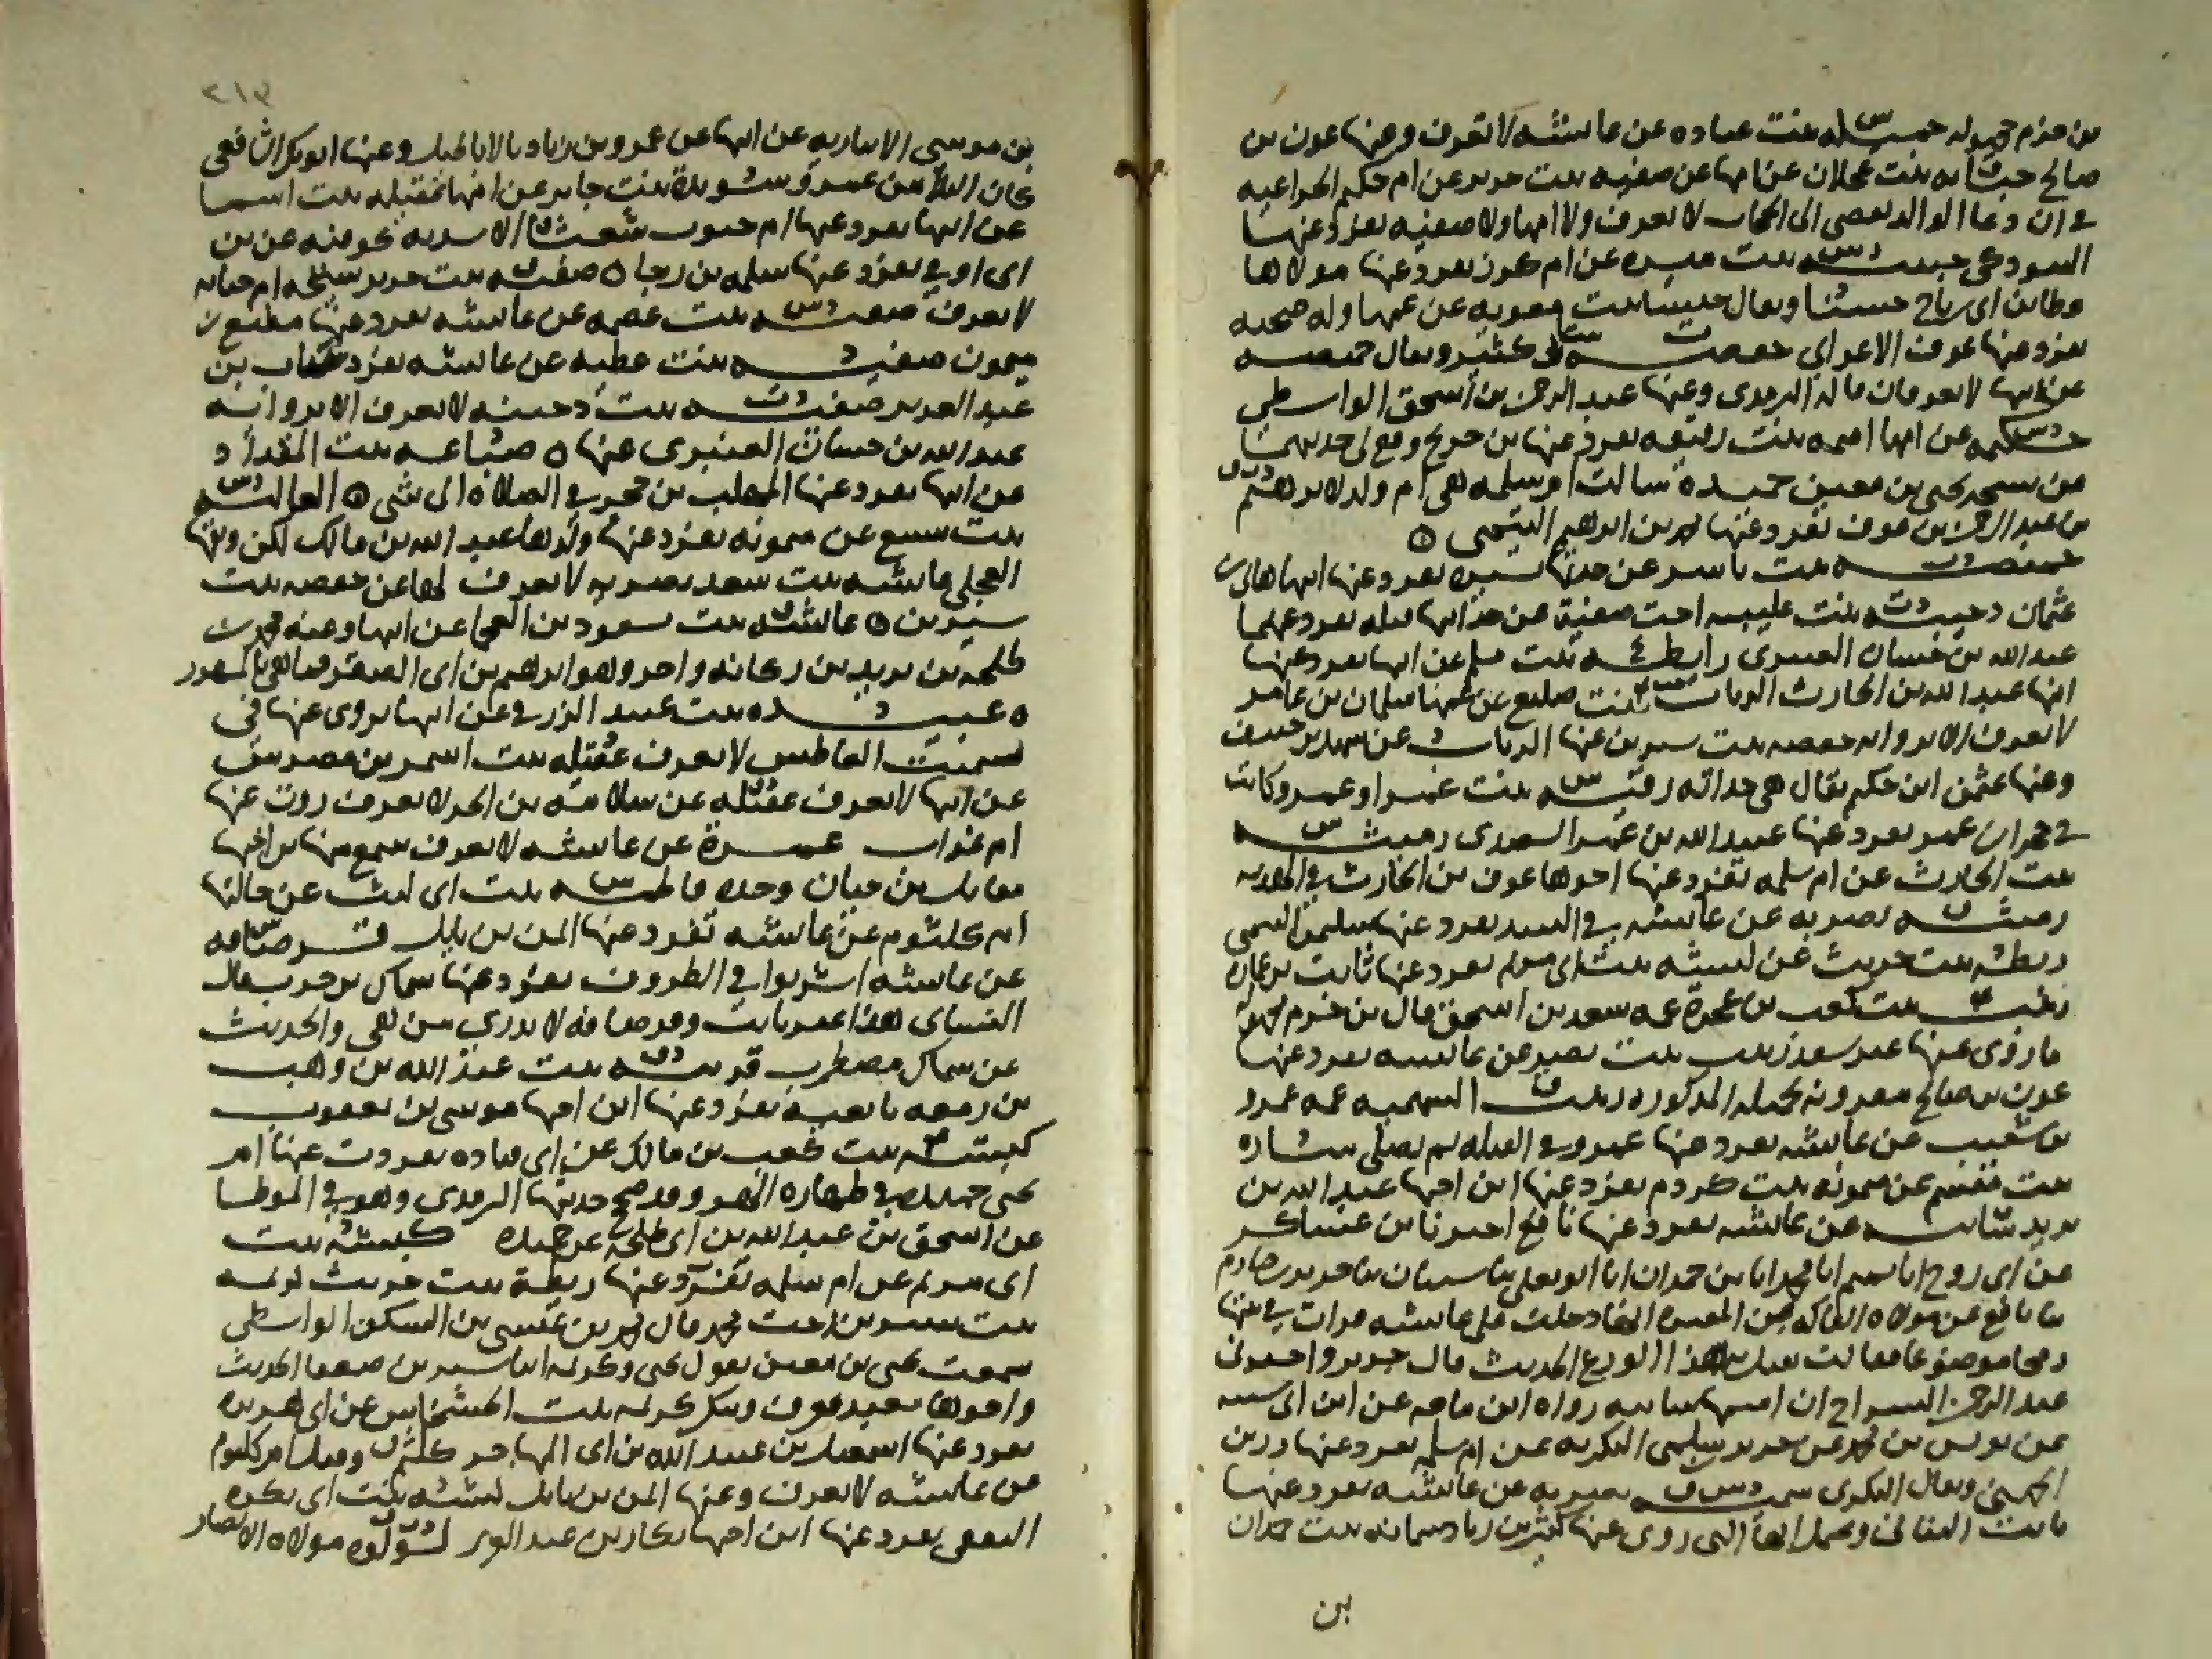 بن حزم مجهولة جميلة بنت عباده عن عائشه لا تعرف وعنها عون بن
صالح حبابه بنت عجلان عن امها عن صفيه بنت جرير عن ام حكيم الخزاعيه
في ان دعا الوالد يفضي الى الحجاب لا تعرف ولا امها ولا صفيه تفرد عنها
التبوذكي حبيبه بنت ميسره عن ام كرز تفرد عنها مولاها
عطا بن ابي رباح حسنا ويقال خنسا بنت معويه عن عمها وله صحبه
تفرد عنها عوف الاعرابي حفصه بنت ابي كثير ويقال حميضه
عن ابيها لا تعرفان قاله الترمذي وعنها عبد الرحمن بن اسحق الواسطي
حكيمه عن امها اميمه بنت رقيقه تفرد عنها بن جريج
يحيى بن معين حميده سالت ام سلمه هي ام ولد لابرهيم
بن عبد الرحمن بن عوف تفرد عنها محمد بن ابرهيم التيمي ه
حميضه بنت ياسر عن جدتها يسيره تفرد عنها ابنها هانئ بن
عثمان دحيبه بنت عليبه اخت صفية عن جدة ابيها قيله تفرد عنهما
عبد الله بن حسان العنبري رايطه بنت مسلم عن ابيها تفرد عنها
ابنها عبد الله بن الحارث الرباب بنت صليع عن عمها سلمان بن عامر
لا تعرف الا بروايه حفصه بنت سيرين عنها الرباب عن سهل بن حنيف
وعنها عثمن ابن حكيم يقال هي جدته رقيه بنت عمرو او عمر وكانت
في حجر ابن عمر تفرد عنها عبيد الله بن عمر السعيدي رميثه
بنت الحارث عن ام سلمه تفرد عنها اخوها عوف بن الحارث في الهديه
رميثه بصريه عن عائشه في النبيذ تفرد عنها سليمن التيمي
ريطه بنت حريث عن كبشه بنت ابي مريم تفرد عنها ثابت بن عماره
زينب بنت كعب بن عجرة عمة سعد بن اسحق قال بن حزم مجهولة
ما روى عنها غير سعد زينب بنت نصر عن عائشه تفرد عنها
عون بن صالح مقرونه بجميله المذكوره زينب السهميه عمه عمرو
بن شعيب عن عائشه تفرد عنها عمرو في القبله ثم يصلي ساره
بنت مقسم عن ميمونه بنت كردم تفرد عنها ابن اخيها عبد الله بن
يزيد سايبه عن عائشه تفرد عنها نافع اخبرنا بن عساكر
عن ابي روح انا تميم انا محمد انا بن حمدان انا ابو يعلى بنا شيبان بنا جرير بن حازم
بنا نافع عن مولاه الفاكه بن المغيره انها دخلت على عائشه فرات في بيتها
رمحا موضوعا فقالت نقتل به هذا الوزغ الحديث قال جرير واخبرني
عبد الرحمن السراج ان اسمها سايبه رواه ابن ماجه عن ابن ابي شيبه
عن يونس بن محمد عن جرير سلمى البكريه عن ام سلمه تفرد عنها رزين
الجهني ويقال البكري سميه بصريه عن عائشه تفرد عنها
ثابت البناني ويحتمل انها التي روى عنها كثير بن زياد سمانه بنت حمدان
بن
٢١٣
بن موسى الانباريه عن ابيها عن عمرو بن زياد بالاباطيل وعنها ابو بكر الشافعي
كان البلا من عمرو سويدة بنت جابر عن امها عقيله بنت اسمر
عن ابيها تفرد عنها ام جنوب شعثا الاسديه كوفيه عن بن
ابي اوفى تفرد عنها سلمه بن رجا ه صفيه بنت جرير شيخه ام حبابه
لا تعرف صفيه بنت عصمه عن عائشه تفرد عنها مطيع بن
ميمون صفيه بنت عطيه عن عائشه تفرد عتاب بن
عبد العزيز صفيه بنت دحيبه لا تعرف الا بروايه
عبد الله بن حسان العنبري عنها ه ضباعه بنت المقداد
عن ابيها تفرد عنها المهلب بن حجر في الصلاة الى شي ه العاليه
بنت سبيع عن ميمونه تفرد عنها ولدها عبد الله بن مالك لكن وثقها
العجلي عائشه بنت سعد بصريه لا تعرف لها عن حفصه بنت
سيرين ه عائشه بنت مسعود بن العجما عن ابيها وعنه محمد بن
طلحه بن يزيد بن ركانه
ه عبيده بنت عبيد الزرقي عن ابيها يروى عنها في
تسميت العاطس لا تعرف عقيله بنت اسمر بن مضرس
عن ابيها لا تعرف عقيله عن سلامه بن الحر لا تعرف روت عنها
ام غراب عمرة عن عائشه لا تعرف سمع منها بن اخيها
مقاتل بن حيان وحده فاطمه بنت ابي ليث عن خالتها
ام كلثوم عن عائشه تفرد عنها ايمن بن نابل قرصافه
عن عائشه اشربوا في الظروف تفرد عنها سماك بن حرب قال
النسائي هذا غير ثابت وقرصافه لا ندري من هي والحديث
عن سماك مضطرب قريبه بنت عبد الله بن وهب
بن زمعه تابعيه تفرد عنها ابن اخيها موسى بن يعقوب
كبشه بنت كعب بن مالك عن ابي قتاده تفردت عنها ام
يحيى حميده في طهاره الهر وقد صحح حديثها الترمذي وهو في الموطا
عن اسحق بن عبد الله بن ابي طلحه عن حميده كبشه بنت
ابي مريم عن ام سلمه تفرد عنها ريطة بنت حريث كريمه
بنت سيرين اخت محمد قال محمد بن عيسى بن السكن الواسطي
سمعت يحيى بن معين يقول يحيى وكريمه ابنا سيرين ضعفا الحديث
واخوها معبد تعرف وتنكر كريمه بنت الحسحاس عن ابي هريره
تفرد عنها اسمعيل بن عبيد الله بن ابي المهاجر كلثم وقيل ام كلثوم
عن عائشه لا تعرف وعنها ايمن بن نابل كيسه بنت ابي بكره
الثقفي تفرد عنها ابن اخيها بكار بن عبد العزيز لؤلؤه مولاه الانصار